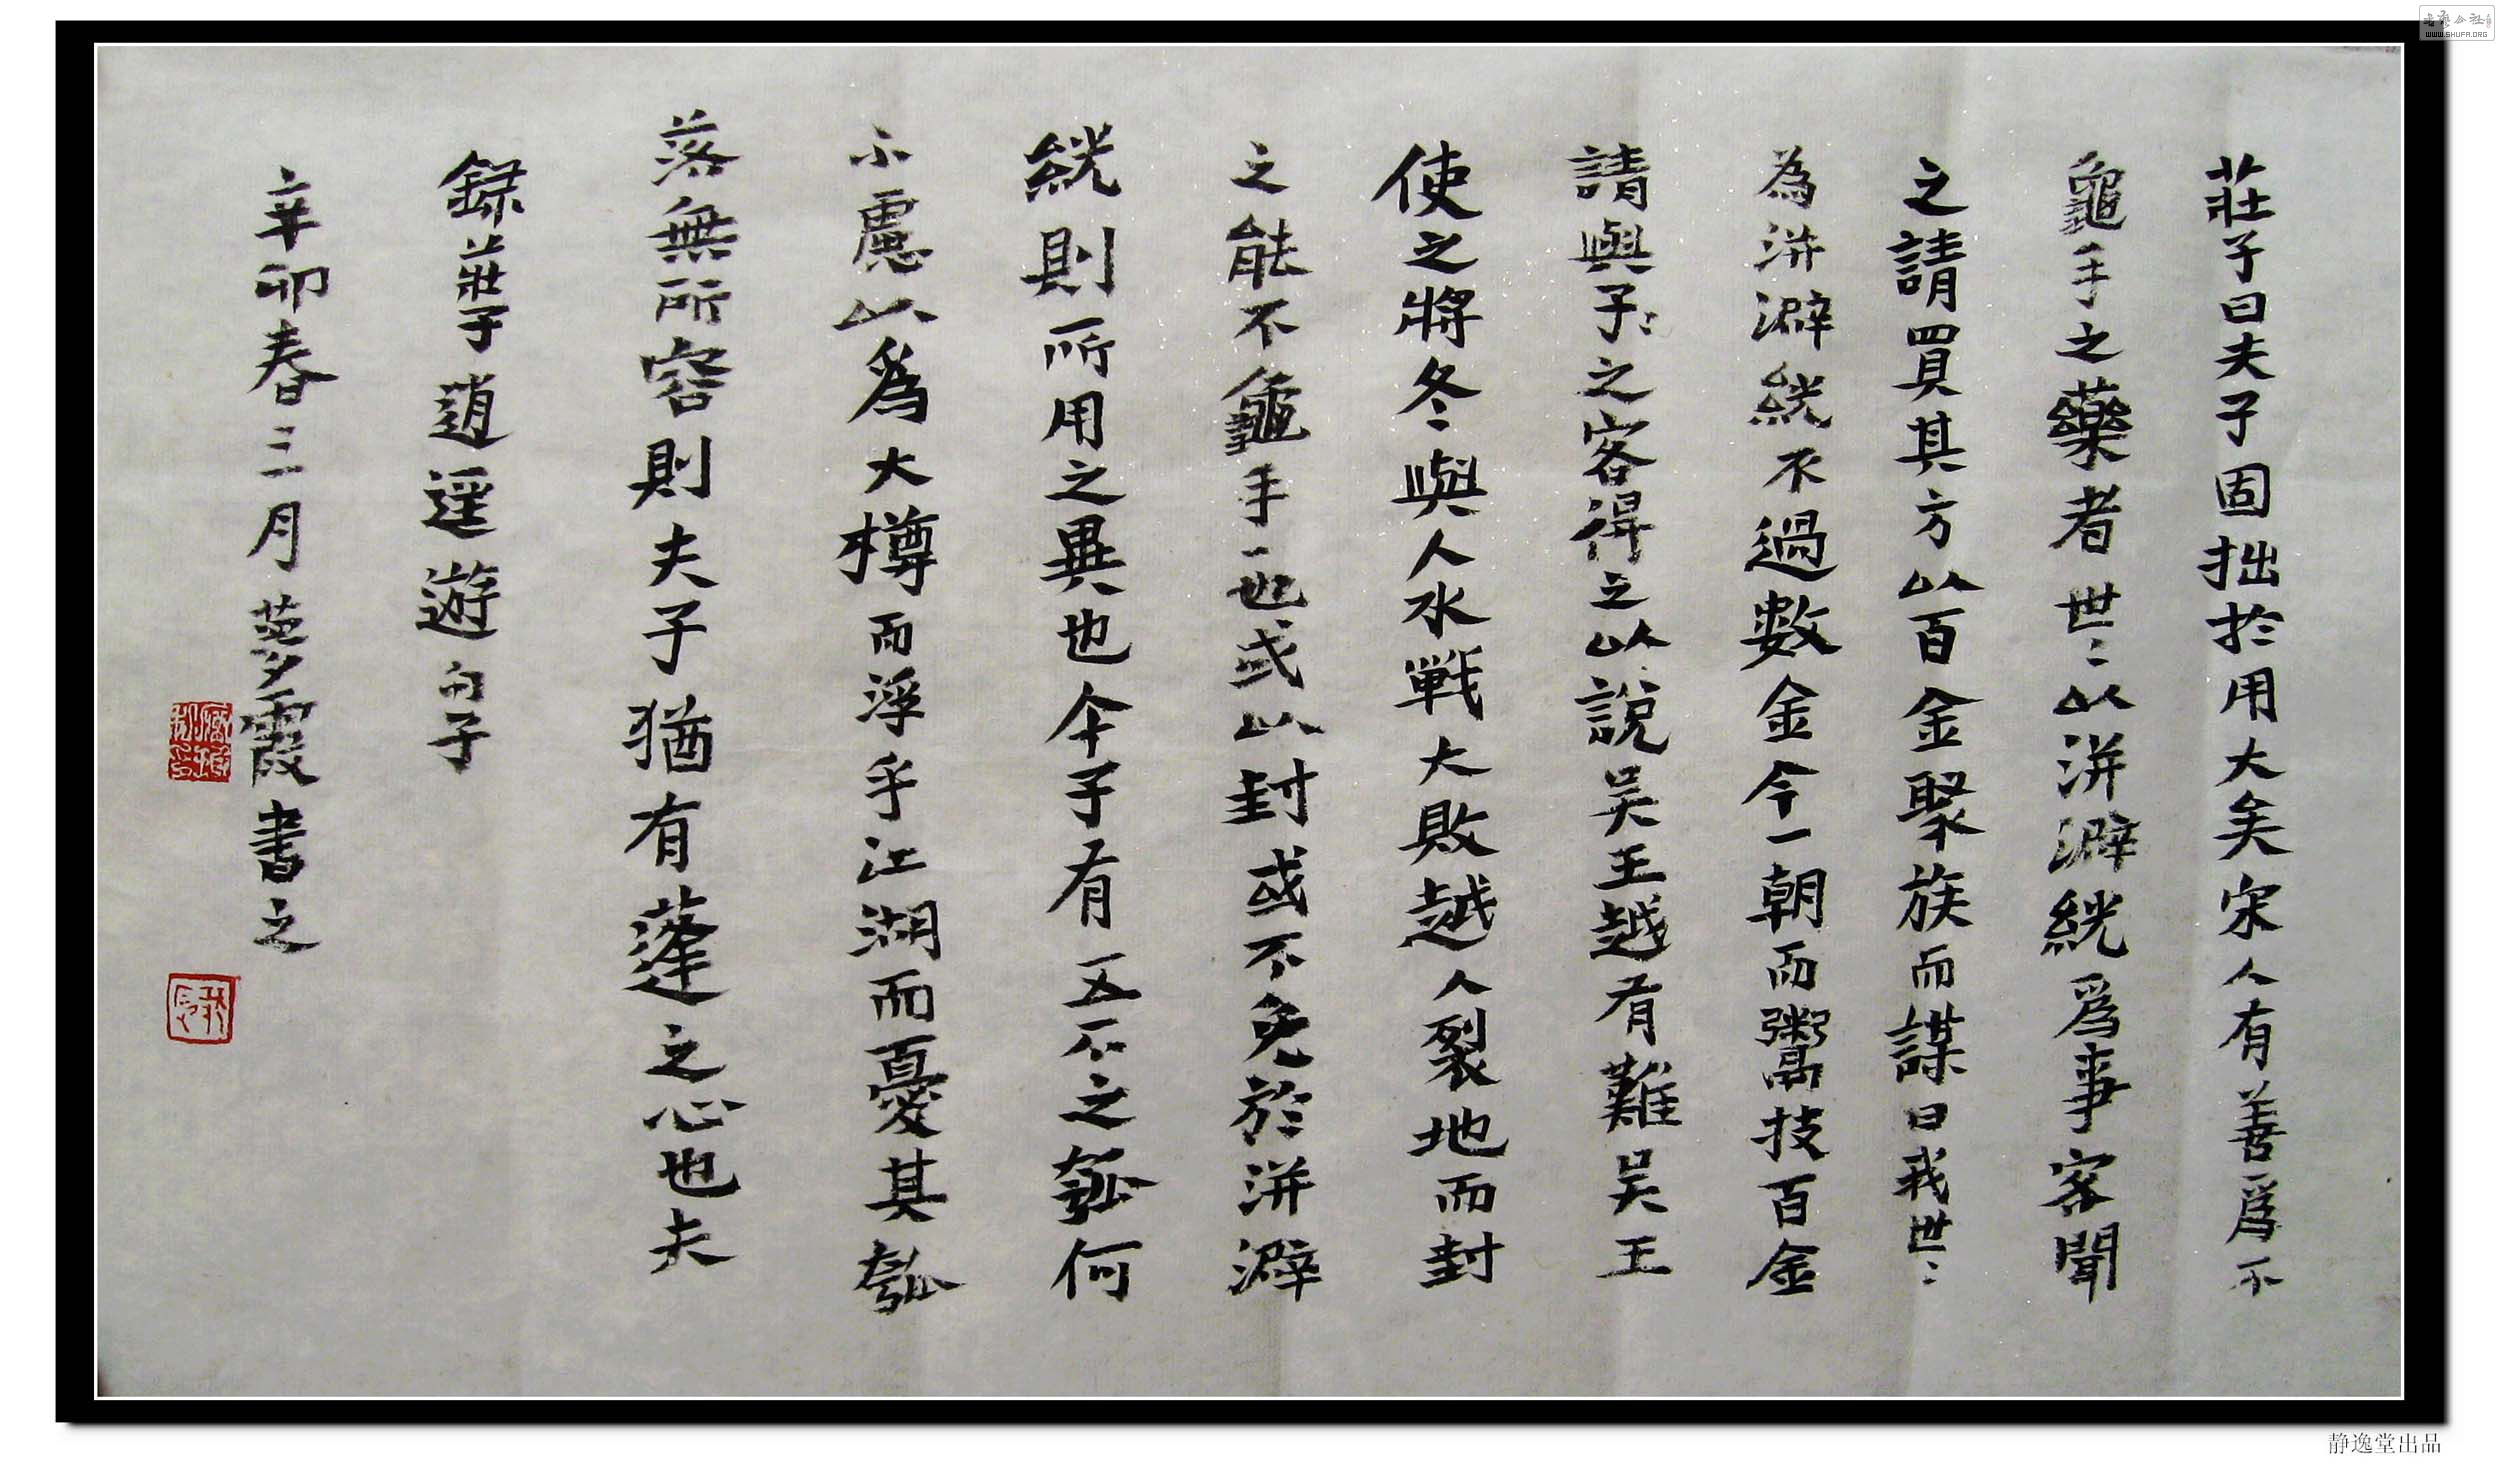 莊子曰夫子固拙於用大矣宋人有善爲不
龜手之藥者世〻以洴澼絖爲事客聞
之請買其方以百金聚族而謀曰我世〻
為洴澼絖不過數金今一朝而鬻技百金
請與子〻之客得之以說吴王越有難吴王
使之將冬〻與人水戰大敗越人裂地而封
之能不龜手一也或以封或不免於洴澼
絖則所用之異也今子有五石之瓠何
不慮以爲大樽而浮乎江湖而憂其瓠
落無所容則夫子猶有蓬之心也夫
録莊子逍遥遊句子
辛卯春三月夢霞書之
書藝公社
WWW.SHUFA.ORG
静逸堂出品